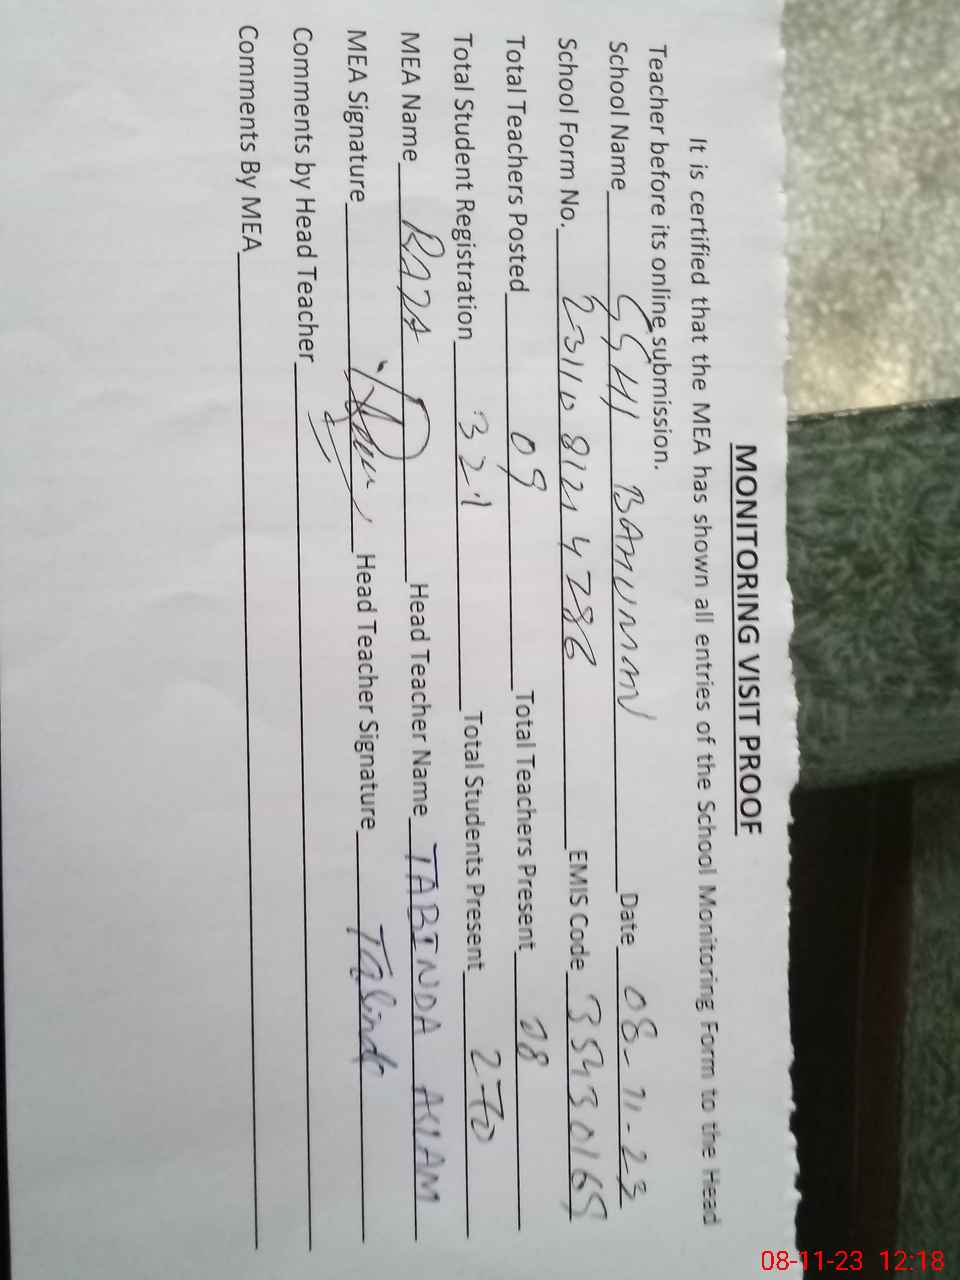 MONITORING VISIT PROOF
It is certified that the MEA has shown all entries of the School Monitoring Form to the Head
Teacher before its online submission.
School Name GGHI BAHUMAN Date 08-11-23
School Form No. 231108121 4286 EMIS Code 35430165
Total Teachers Posted 09 Total Teachers Present 08
Total Student Registration 321 Total Students Present 270
MEA Name RAZA Head Teacher Name TABINDA ASLAM
MEA Signature Head Teacher Signature Tabinda
Comments by Head Teacher
Comments By MEA
08-11-23 12:18